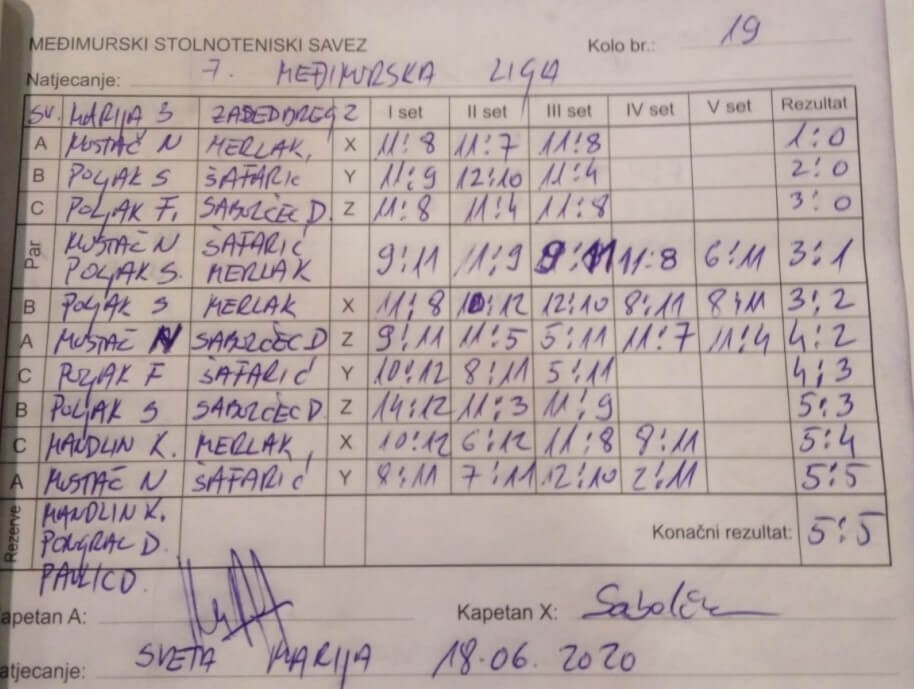 MEĐIMURSKI STOLNOTENISKI SAVEZ Kolo br.: 19
Natjecanje: 7. MEĐIMURSKA LIGA
SV. MARIJA 3 ZABED I set II set III set IV set V set Rezultat
A MUSTAČ N MERLAK, X 11:8 11:7 11:8 1:0
B POLJAK S ŠAFARIĆ Y 11:9 12:10 11:4 2:0
C POLJAK F. SABOLČEC D. Z 11:8 11:4 11:8 3:0
Par MUSTAČ N ŠAFARIĆ
POLJAK S. MERLAK 9:11 11:9 9:11 11:8 6:11 3:1
B POLJAK S MERLAK X 11:8 10:12 12:10 8:11 8:11 3:2
A MUSTAČ N SABOLČEC D Z 9:11 11:5 5:11 11:7 11:4 4:2
C POLJAK F ŠAFARIĆ Y 10:12 8:11 5:11 4:3
B POLJAK S SABOLČEC D. Z 14:12 11:3 11:9 5:3
C MANDLIN K. MERLAK, X 10:12 6:12 11:8 9:11 5:4
A MUSTAČ N ŠAFARIĆ Y 8:11 7:11 12:10 2:11 5:5
Rezerve MANDLIN K.
PONGRAC D. Konačni rezultat: 5:5
PAVLIC D.
apetan A: Kapetan X:
atjecanje: SVETA MARIJA 18.06.2020